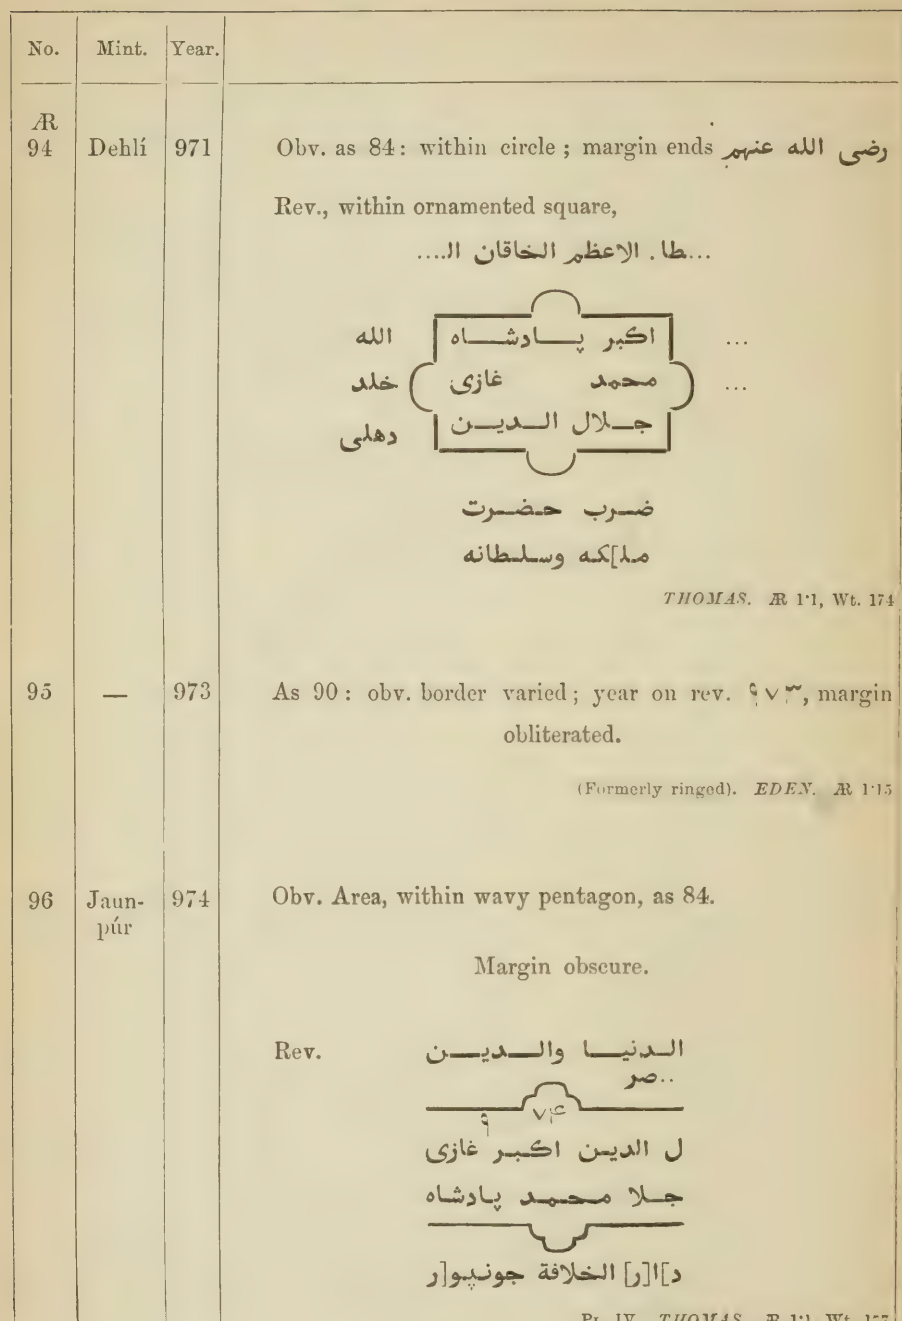 No. Mint. Year.
Ꜹ
94 Dehlí 971 Obv. as 84: within circle; margin ends رضى الله عنهم
Rev., within ornamented square,
...طا. الاعظم الخاقان ال....
اكبر پادشاه الله ...
محمد غازى خلد ...
جلال الدين دهلى
ضرب حضرت
مل]كه وسلطانه
THOMAS. Ꜹ 1·1, Wt. 174
95 — 973 As 90: obv. border varied; year on rev. ۹۷۳, margin
obliterated.
(Formerly ringed). EDEN. Ꜹ 1·15
96 Jaun- 974 Obv. Area, within wavy pentagon, as 84.
púr
Margin obscure.
Rev. الدنيا والدين
..صر
۹۷۴
ل الدين اكبر غازى
جلا محمد پادشاه
د]ا[ر] الخلافة جونپو[ر
PL. IV. THOMAS. Ꜹ 1·1, Wt.